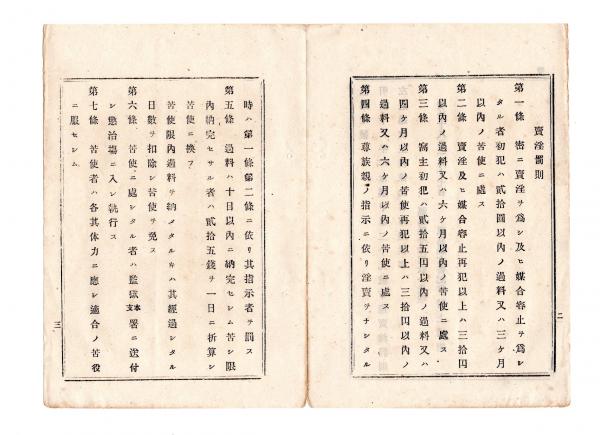 賣淫罰則
第一條　密ニ賣淫ヲ爲シ及ヒ媒合容止ヲ爲シ
タル者初犯ハ貳拾圓以内ノ過料又ハ三ケ月
以内ノ苦使ニ處ス
第二條　賣淫及ヒ媒合容止再犯以上ハ三拾圓
以内ノ過料又ハ六ケ月以内ノ苦使ニ處ス
第三條　窩主初犯ハ貳拾五圓以内ノ過料又ハ
四ケ月以内ノ苦使再犯以上ハ三拾圓以内ノ
過料又ハ六ケ月以内ノ苦使ニ處ス
第四條　尊族親ノ指示ニ依リ淫賣ヲナシタル
二
時ハ第一條第二條ニ依リ其指示者ヲ罰ス
第五條　過料ハ十日以内ニ納完セシム若シ限
内納完セサル者ハ貳拾五錢ヲ一日ニ折算シ
苦使ニ換フ
苦使限内過料ヲ納メタルキハ其經過シタル
日數ヲ扣除シ苦使ヲ免ス
第六條　苦使ニ處シタル者ハ監獄本支署ニ送付
シ懲治塲ニ入レ執行ス
第七條　苦使者ハ各其体力ニ應シ適合ノ苦役
ニ服セシム
三